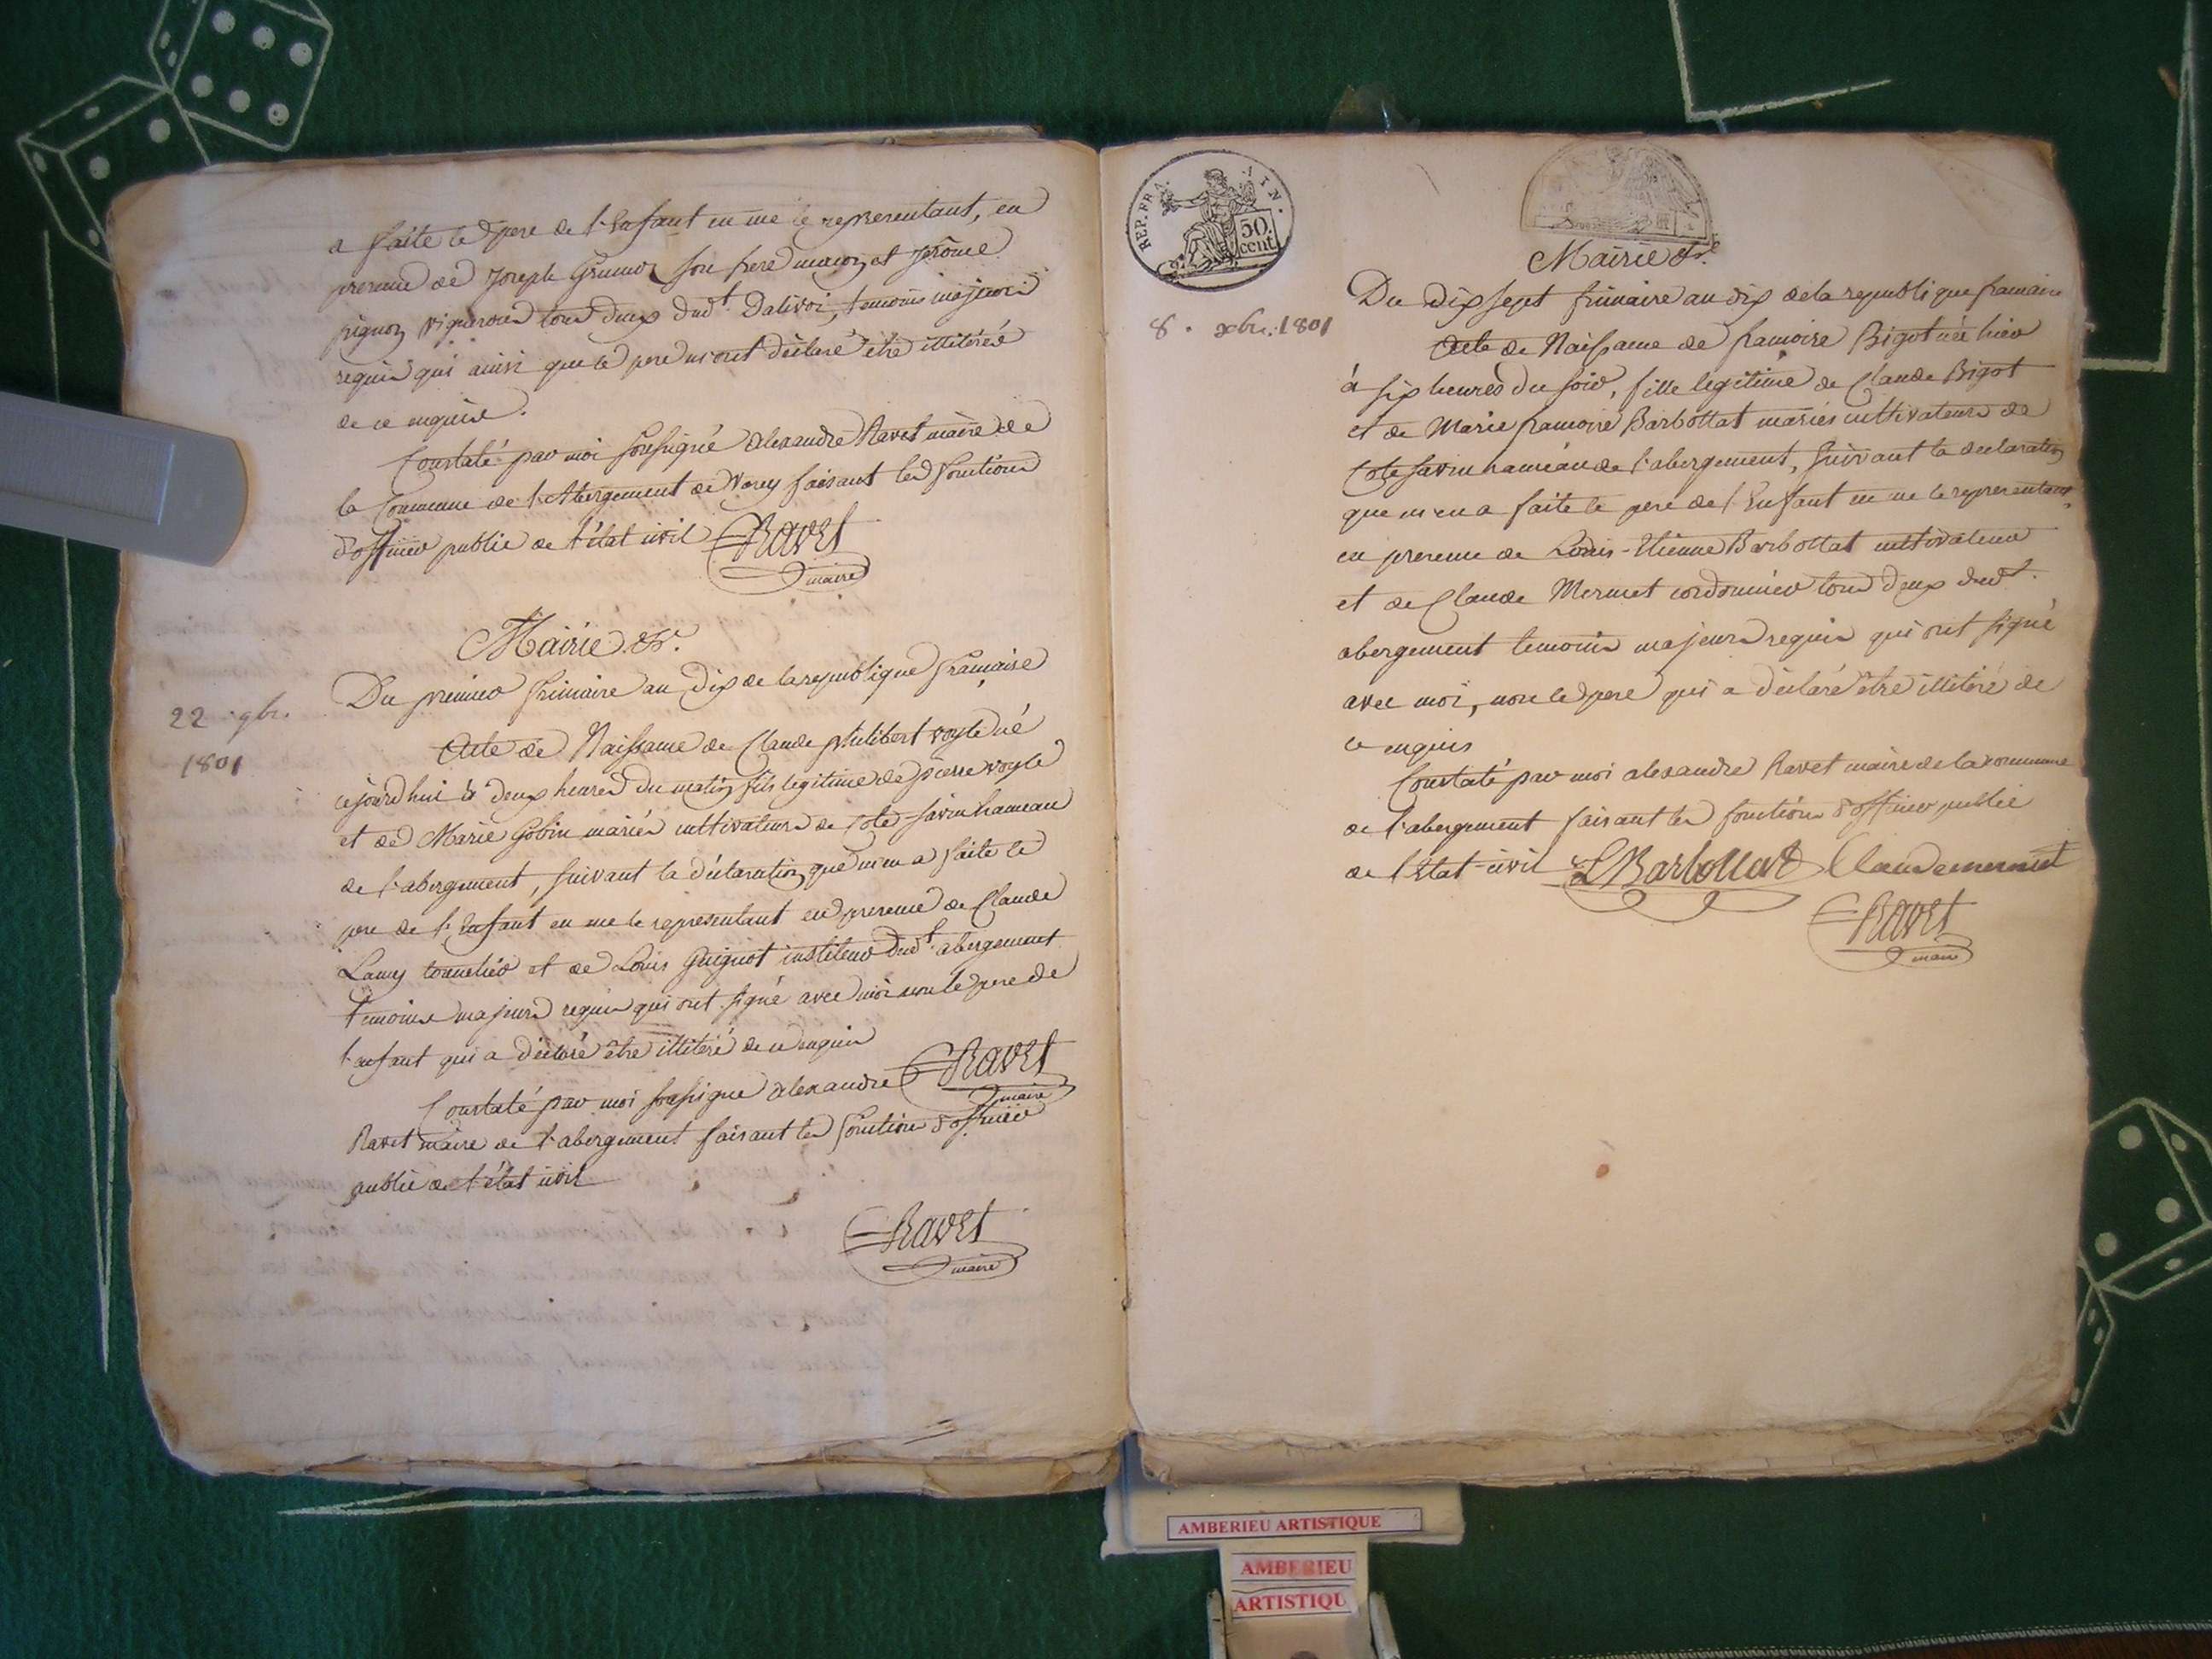 a faite le pere de l'Enfant en me le representant, en
presence de Joseph son frere maçon et Jerôme
pignon vigneron tous deux dud.t Dalivoi, temoins majeurs
requis qui ainsi que le pere m'ont déclaré être illitérés
de ce enquis.
Constaté par moi soussigné alexandre Ravet maire de
la Commune de l'Abergement de Varey faisant les fonctions
d'officier public de l'état civil Ravet
maire
Mairie &c.
Du premier frimaire an Dix de la republique française
22 . 9br.
1801
Acte de Naissance de Claude philibert voyle né
cejourdhui à deux heures du matin fils legitime de pierre voyle
et de Marie Gobin mariés cultivateurs de Cote-savin hameau
de l'abergement, suivant la déclaration que m'en a faite le
pere de l'Enfant en me le representant en presence de Claude
Lamy tonnelier et de Louis Guignot instituteur dud.t abergement
temoins majeurs requis qui ont signé avec moi non le pere de
l'enfant qui a déclaré être illitéré de ce enquis
Ravet
maire
Constaté par moi soussigné alexandre
Ravet maire de l'abergement faisant les fonctions d'officier
public de l'état civil
Ravet
maire
REP. FRA.
50.
cent
Mairie &c.
8 . xbr. 1801
Du Dix sept frimaire an dix de la republique francaise
Acte de Naissance de francoise Bigot née hier
à six heures du soir, fille legitime de Claude Bigot
et de Marie francoise Barbottat mariés cultivateurs de
Cote savin hameau de l'abergement, suivant la declaration
que m'en a faite le pere de l'Enfant en me le representant,
en presence de Louis-Etienne Barbottat cultivateur
et de Claude Mermet cordonnier tous deux dud.t
abergement temoins majeurs requis qui ont signé
avec moi, non le pere qui a déclaré être illitéré de
ce enquis
Constaté par moi alexandre Ravet maire de la commune
de l'abergement faisant les fonctions d'officier public
de l'Etat-civil LBarbottat Claude mermet
Ravet
maire
AMBERIEU ARTISTIQUE
AMBERIEU
ARTISTIQU